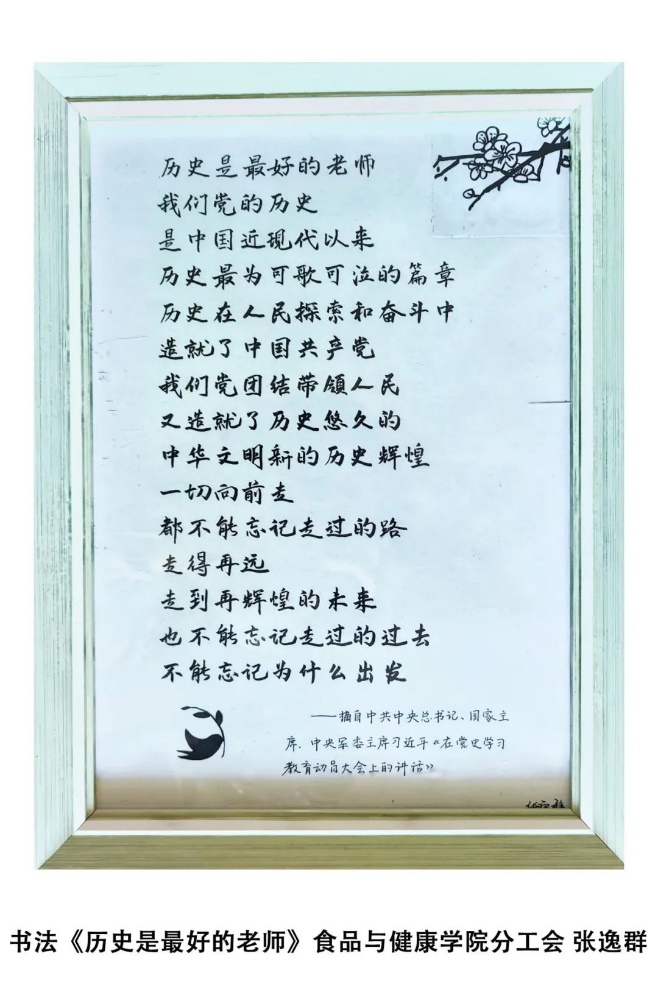 历史是最好的老师
我们党的历史
是中国近现代以来
历史最为可歌可泣的篇章
历史在人民探索和奋斗中
造就了中国共产党
我们党团结带领人民
又造就了历史悠久的
中华文明新的历史辉煌
一切向前走
都不能忘记走过的路
走得再远
走到再辉煌的未来
也不能忘记走过的过去
不能忘记为什么出发
——摘自中共中央总书记、国家主
席、中央军委主席习近平《在党史学习
教育动员大会上的讲话》
书法《历史是最好的老师》食品与健康学院分工会 张逸群